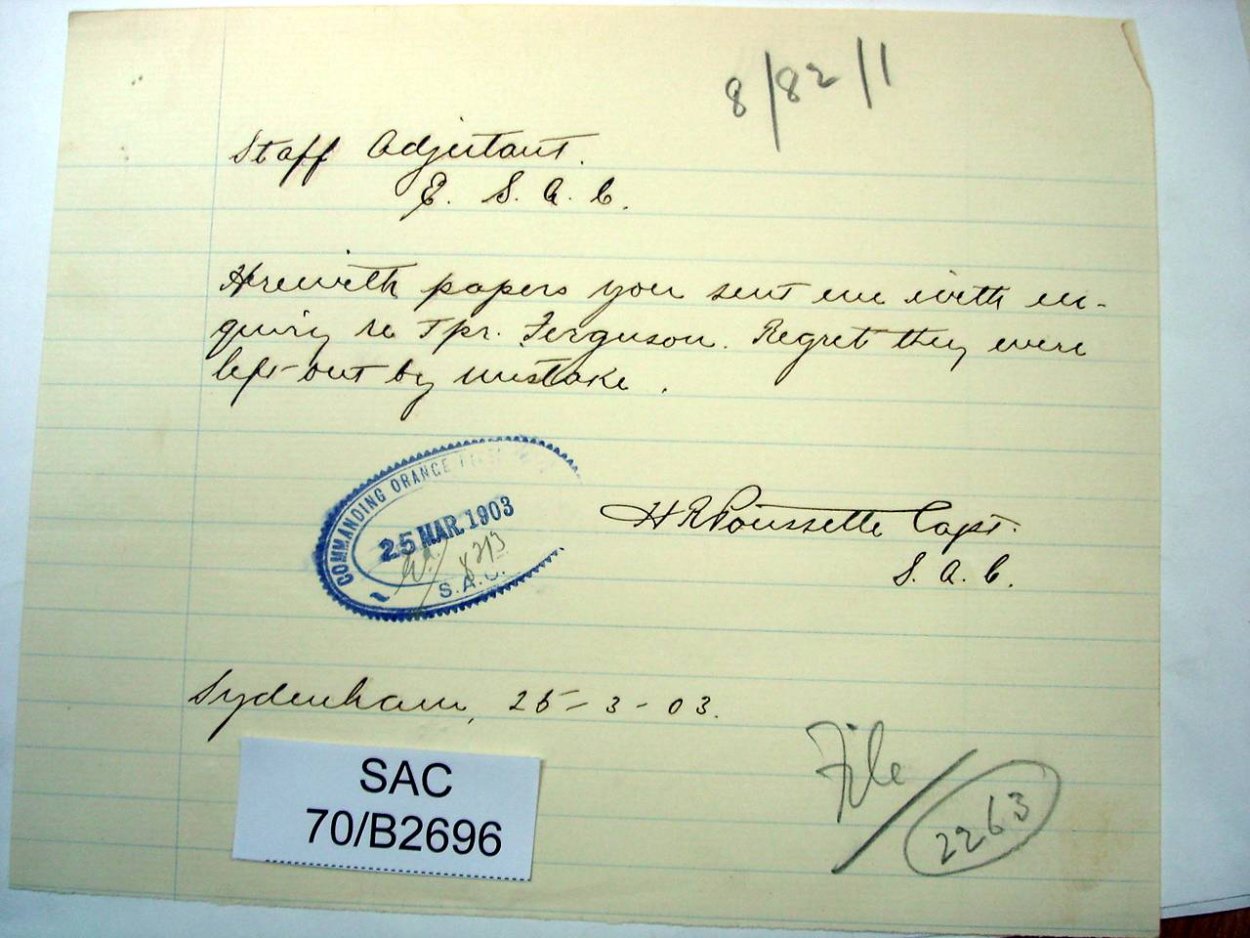 8/82/1
Staff Adjutant.
E. S. A. C.
Herewith papers you sent me with en-
quiry re Tpr. Ferguson. Regret they were
left out by mistake.
COMMANDING ORANGE
25 MAR. 1903
S.A.C.
H R Poussette Capt.
S. A. C.
Sydenham, 25-3-03.
File
2263
SAC
70/B2696